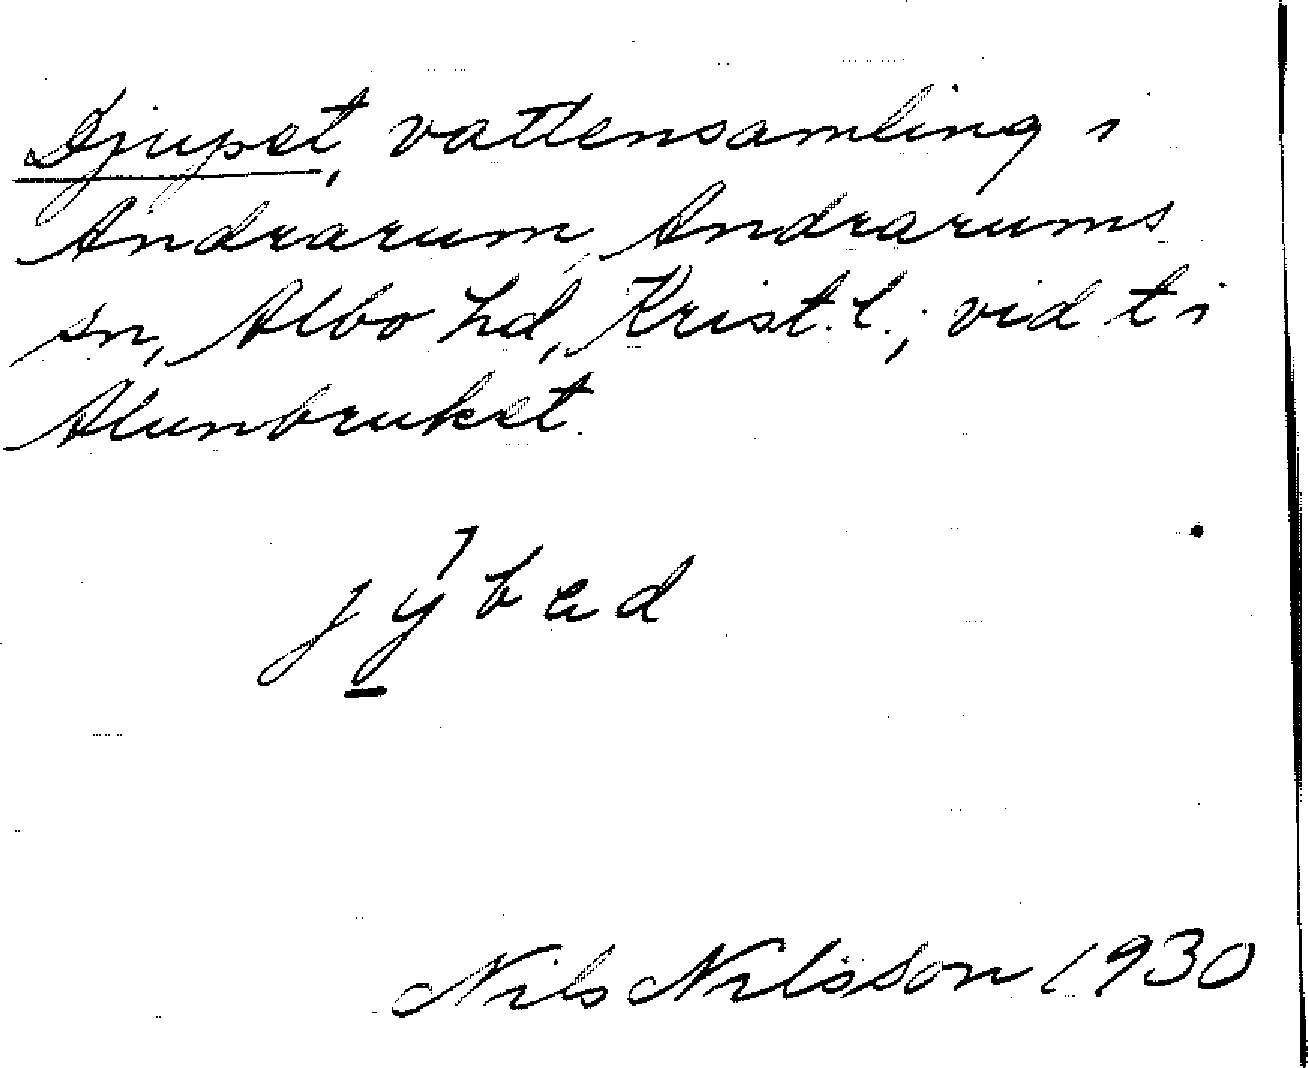 Djupet, vattensamling i
Andrarum, Andrarums
sn, Albo hd, Krist. l.; vid t i
Alunbruket.
Nils Nilsson 1930